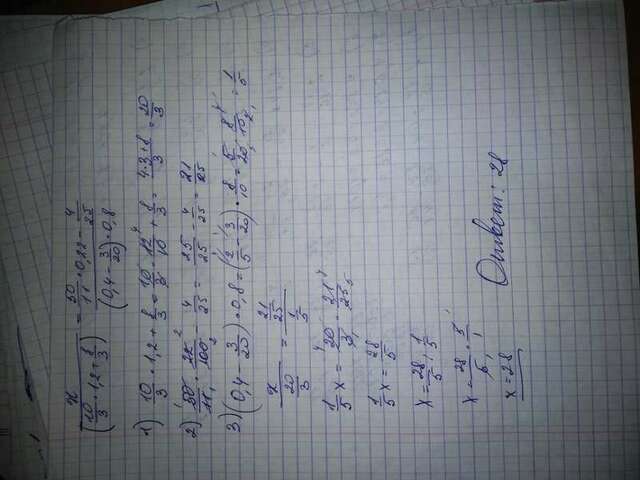 x/(10/3 · 1,2 + 8/3) = (50/11 · 0,22 - 4/25)/((0,4 - 3/20) · 0,8)
1) 10/3 · 1,2 + 8/3 = 10/3 · 12/10 + 8/3 = (4·3+8)/3 = 20/3
2) 50/11 · 22/100 - 4/25 = 25/25 - 4/25 = 21/25
3) (0,4 - 3/20) · 0,8 = (2/5 - 3/20) · 8/10 = 5/20 · 8/10 = 1/5
x/(20/3) = (21/25)/(1/5)
1/5 x = 20/3 · 21/25
1/5 x = 28/5
x = 28/5 : 1/5
x = 28/5 · 5/1
x = 28
Ответ: 28